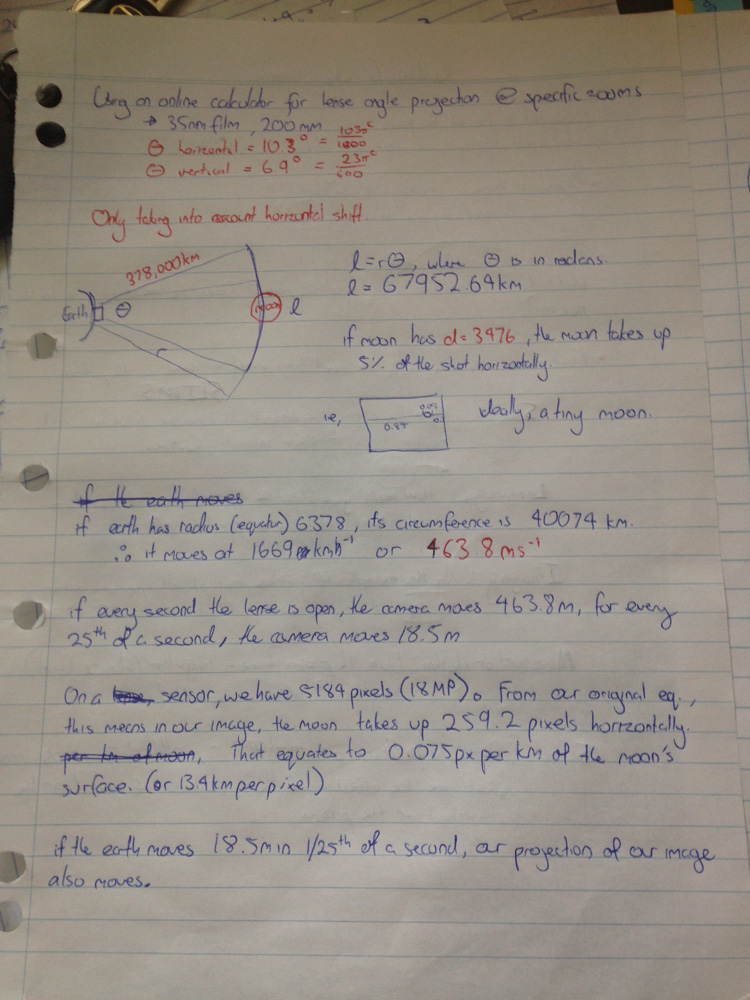 Using an online calculator for lense angle projection @ specific zooms
→ 35mm film, 200mm
θ horizontal = 10.3° = 103π/1800 ᶜ
θ vertical = 6.9° = 23π/600 ᶜ
Only taking into account horizontal shift.
378,000km
Earth θ moon l
l = rθ, where θ is in radians.
l = 67952.64km
if moon has d = 3476, the moon takes up
5% of the shot horizontally.
ie, 0.85 0.05 Ideally, a tiny moon.
if the earth moves
if earth has radius (equator) 6378, its circumference is 40074 km.
∴ it moves at 1669 kmh⁻¹ or 463.8ms⁻¹
if every second the lense is open, the camera moves 463.8m, for every
25th of a second, the camera moves 18.5m
On a lense, sensor, we have 5184 pixels (18MP). From our original eq.,
this means in our image, the moon takes up 259.2 pixels horizontally.
per km of moon, That equates to 0.075px per km of the moon's
surface. (or 13.4km per pixel)
if the earth moves 18.5m in 1/25th of a second, our projection of our image
also moves.